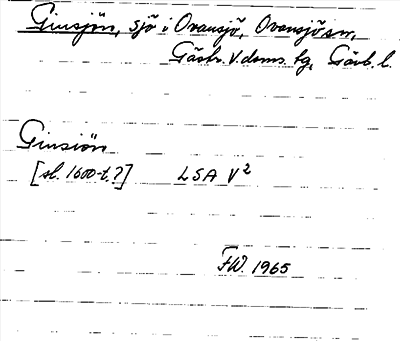 Ginsjön, sjö i Ovansjö, Ovansjö sn,
Gästr. V. doms. tg, Gävb. l.
Ginsiön
[sl. 1600-t.?] LSA V2
FW. 1965